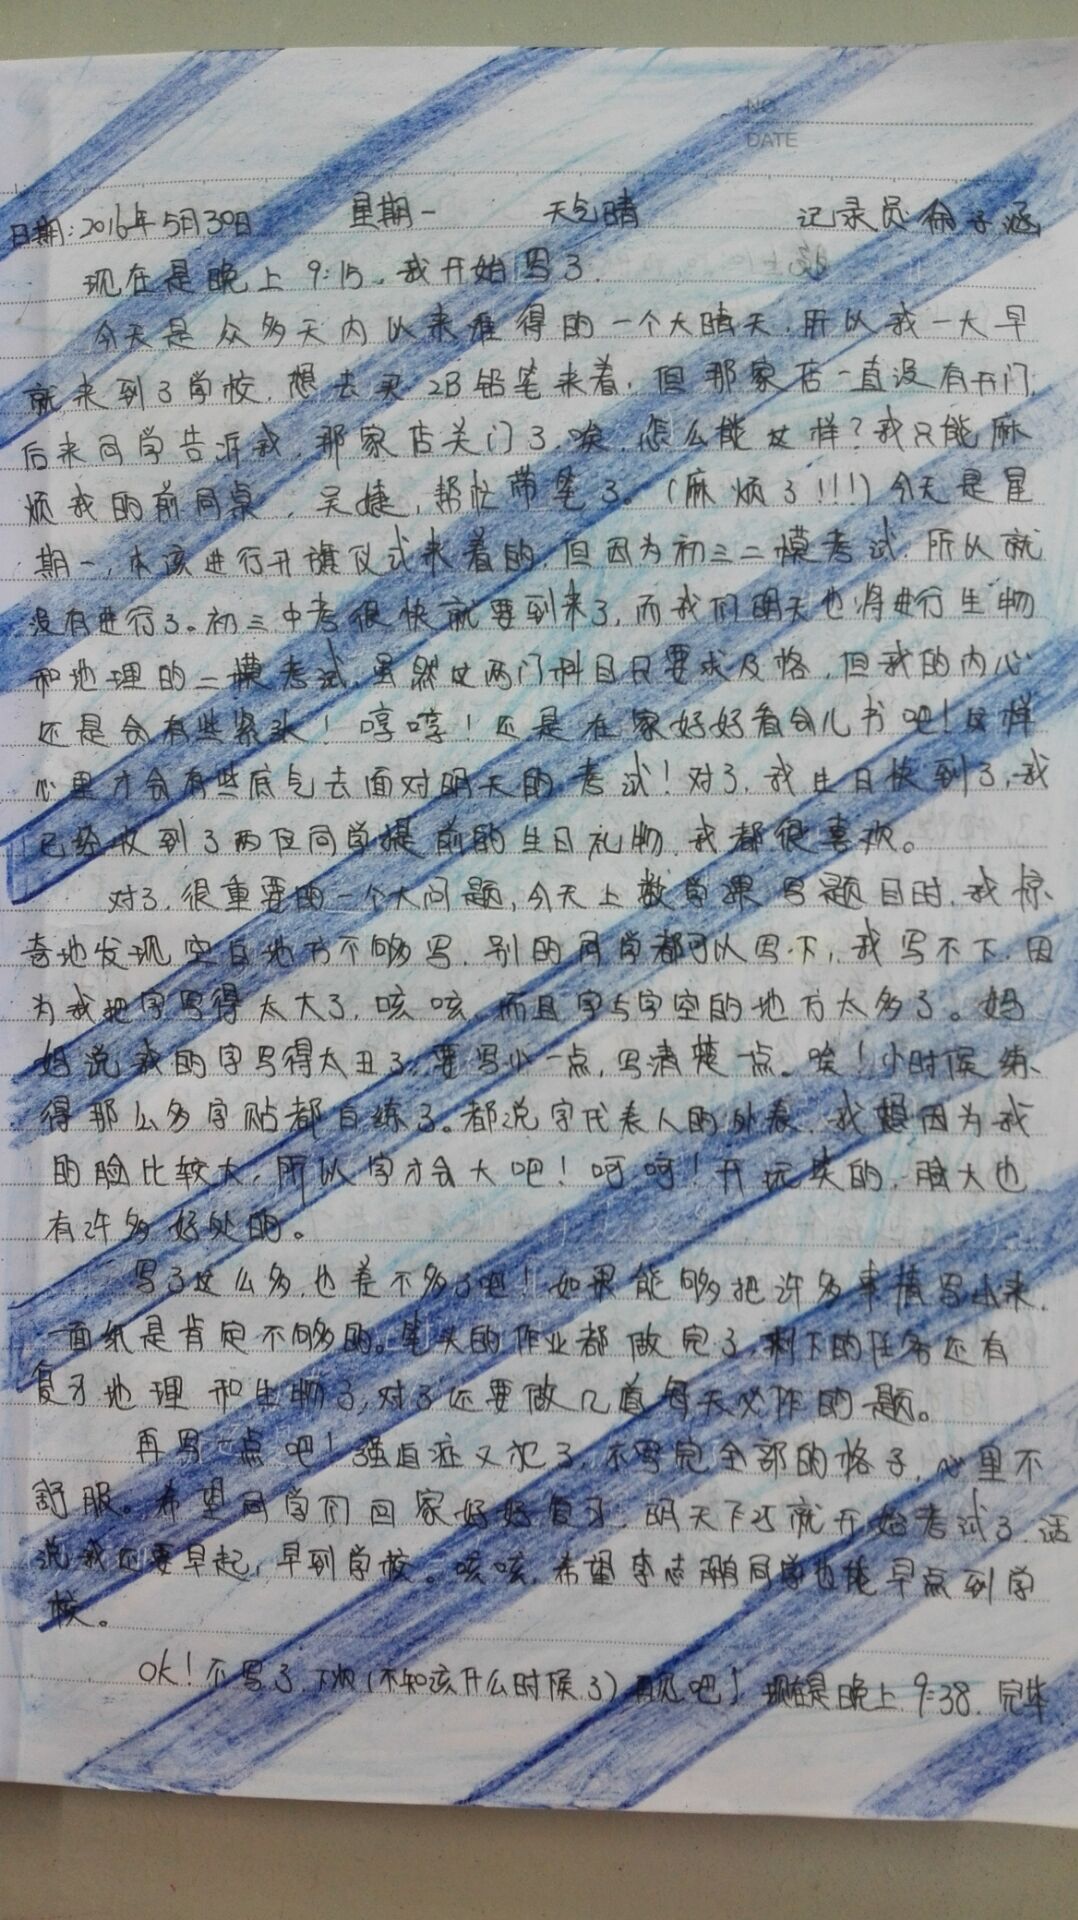 NO.
DATE
日期:2016年5月30日 星期一 天气晴 记录员 徐子涵
现在是晚上9:15,我开始写了.
今天是众多天内以来难得的一个大晴天.所以我一大早
就来到了学校.想去买2B铅笔来着,但那家店一直没有开门,
后来同学告诉我,那家店关门了.唉,怎么能这样?我只能麻
烦我的前同桌,吴婕,帮忙带笔了。(麻烦了!!!)今天是星
期一,本该进行升旗仪式来着的,但因为初三二模考试.所以就
没有进行了。初三中考很快就要到来了,而我们明天也将进行生物
和地理的二模考试.虽然这两门科目只要求及格,但我的内心
还是会有些紧张!哼哼!还是在家好好看会儿书吧!这样
心里才会有些底气去面对明天的考试!对了,我生日快到了,我
已经收到了两位同学提前的生日礼物,我都很喜欢。
对了,很重要的一个大问题,今天上数学课写题目时,我惊
奇地发现空白地方不够写,别的同学都可以写下,我写不下.因
为我把字写得太大了,咳咳,而且字与字空的地方太多了。妈
妈说我的字写得太丑了,要写小一点,写清楚一点。唉!小时候练
得那么多字贴都白练了。都说字代表人的外表,我想因为我
的脸比较大,所以字才会大吧!呵呵!开玩笑的,脸大也
有许多好处的。
写了这么多,也差不多了吧!如果能够把许多事情写出来,
一面纸是肯定不够的。笔头的作业都做完了,剩下的任务还有
复习地理和生物了,对了还要做几道每天必作的题。
再写一点吧!强迫症又犯了,不写完全部的格子,心里不
舒服。希望同学们回家好好复习,明天下巧就开始考试了.话
说我还要早起,早到学校。咳咳,希望李志鹏同学也能早点到学
校。
OK!不写了,下次(不知该什么时候了)再见吧!现在是晚上9:38.完毕